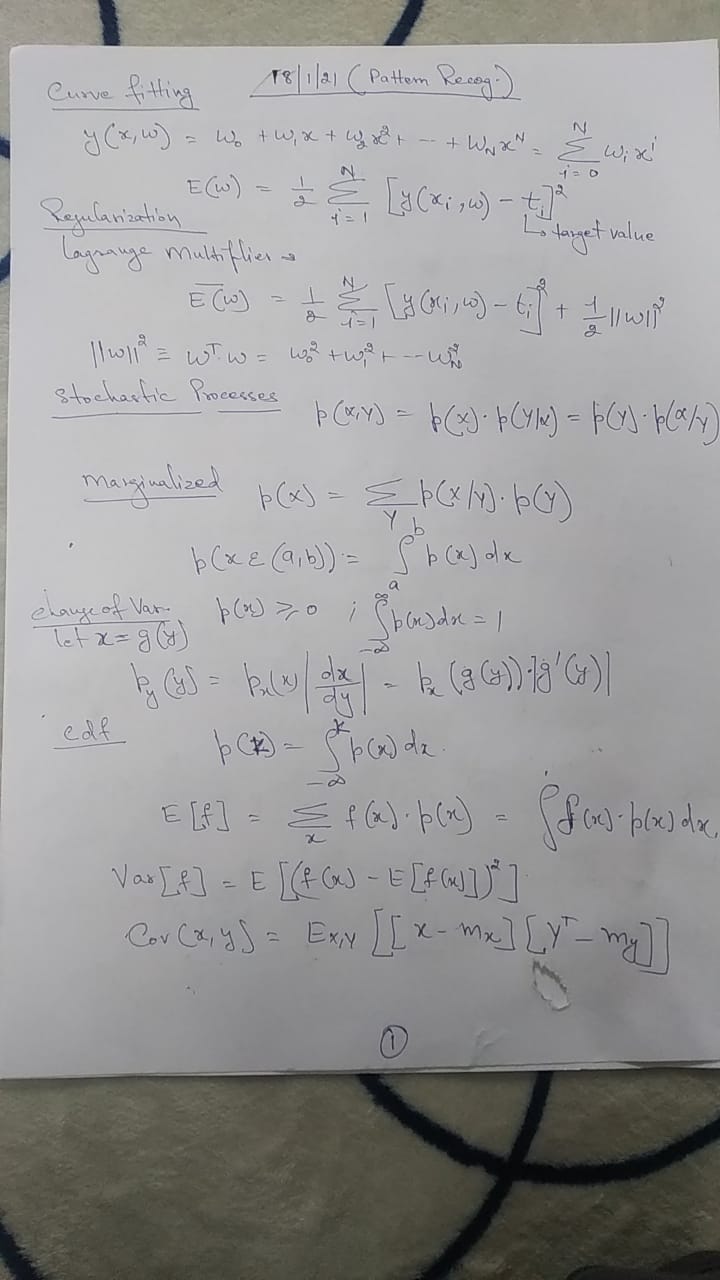 18/1/21 (Pattern Recog.)
Curve fitting
y(x,w) = w₀ + w₁x + w₂x² + -- + W_N x^N = Σ_{i=0}^{N} wᵢxⁱ
E(w) = 1/2 Σ_{i=1}^{N} [y(xᵢ,w) - tᵢ]²
↳ target value
Regularization
Lagrange multiplier →
E̅(w) = 1/2 Σ_{i=1}^{N} [y(xᵢ,w) - tᵢ]² + 1/2 ||w||²
||w||² ≡ wᵀ.w = w₀² + w₁² + -- w_N²
Stochastic Processes
p(x,y) = p(x).p(y/x) = p(y).p(x/y)
Marginalized p(x) = Σ_Y p(x/y).p(y)
p(x ε (a,b)) = ∫_a^b p(x)dx
change of Var. p(x) ≥ 0 ; ∫_{-∞}^{∞} p(x)dx = 1
let x = g(y)
p_y(y) = p_x(x) |dx/dy| = p_x(g(y)).|g'(y)|
cdf
p(x) = ∫_{-∞}^{x} p(x)dx.
E[f] = Σ_x f(x).p(x) = ∫f(x).p(x)dx.
Var[f] = E[(f(x) - E[f(x)])²]
Cov(x,y) = E_{x,y}[[x - m_x][yᵀ - m_y]]
①